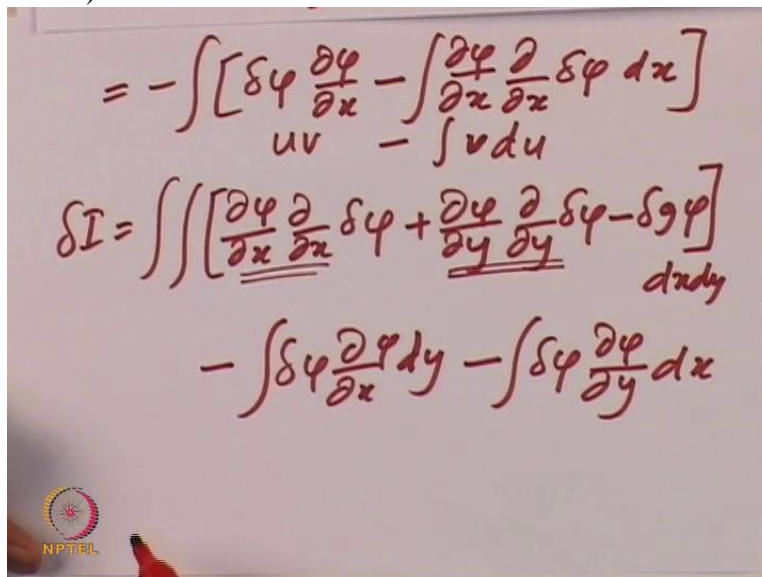 = - ∫ [ δφ ∂φ/∂x - ∫ ∂φ/∂x ∂/∂x δφ dx ]
uv - ∫ v du
δI = ∫∫ [ ∂φ/∂x ∂/∂x δφ + ∂φ/∂y ∂/∂y δφ - δgφ ]
dxdy
- ∫ δφ ∂φ/∂x dy - ∫ δφ ∂φ/∂y dx
NPTEL